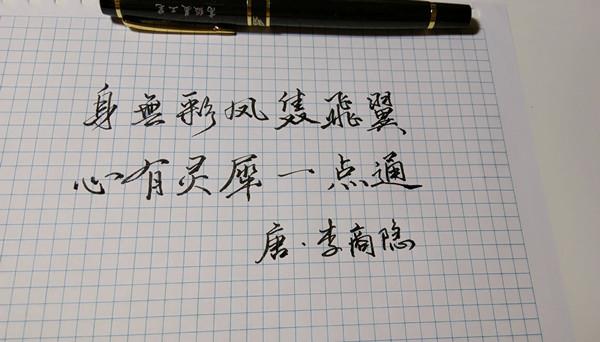 身無彩凤雙飛翼
心有灵犀一点通
唐·李商隐